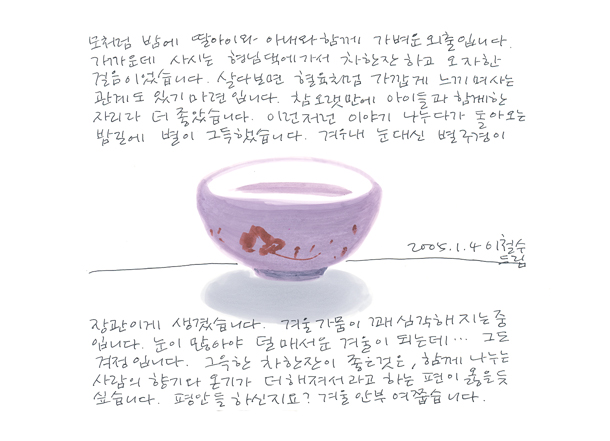 모처럼 밤에 딸아이와 아내와 함께 가벼운 외출입니다.
가까운데 사시는 형님댁에가서 차한잔 하고 오자한
걸음이었습니다. 살다보면 혈육처럼 가깝게 느끼며사는
관계도 있기 마련입니다. 참 오랫만에 아이들과 함께한
자리라 더 좋았습니다. 이런저런 이야기 나누다가 돌아오는
밤길에 별이 그득했습니다. 겨우내 눈대신 별구경이
2005.1.4 이철수
드림
장관이게 생겼습니다. 겨울가뭄이 꽤 심각해지는중
입니다. 눈이 많아야 덜 매서운 겨울이 되는데… 그도
걱정입니다. 그득한 차한잔이 좋은것은, 함께 나누는
사람의 향기와 온기가 더해져서라고 하는 편이 옳을듯
싶습니다. 평안들 하신지요? 겨울안부 여쭙습니다.